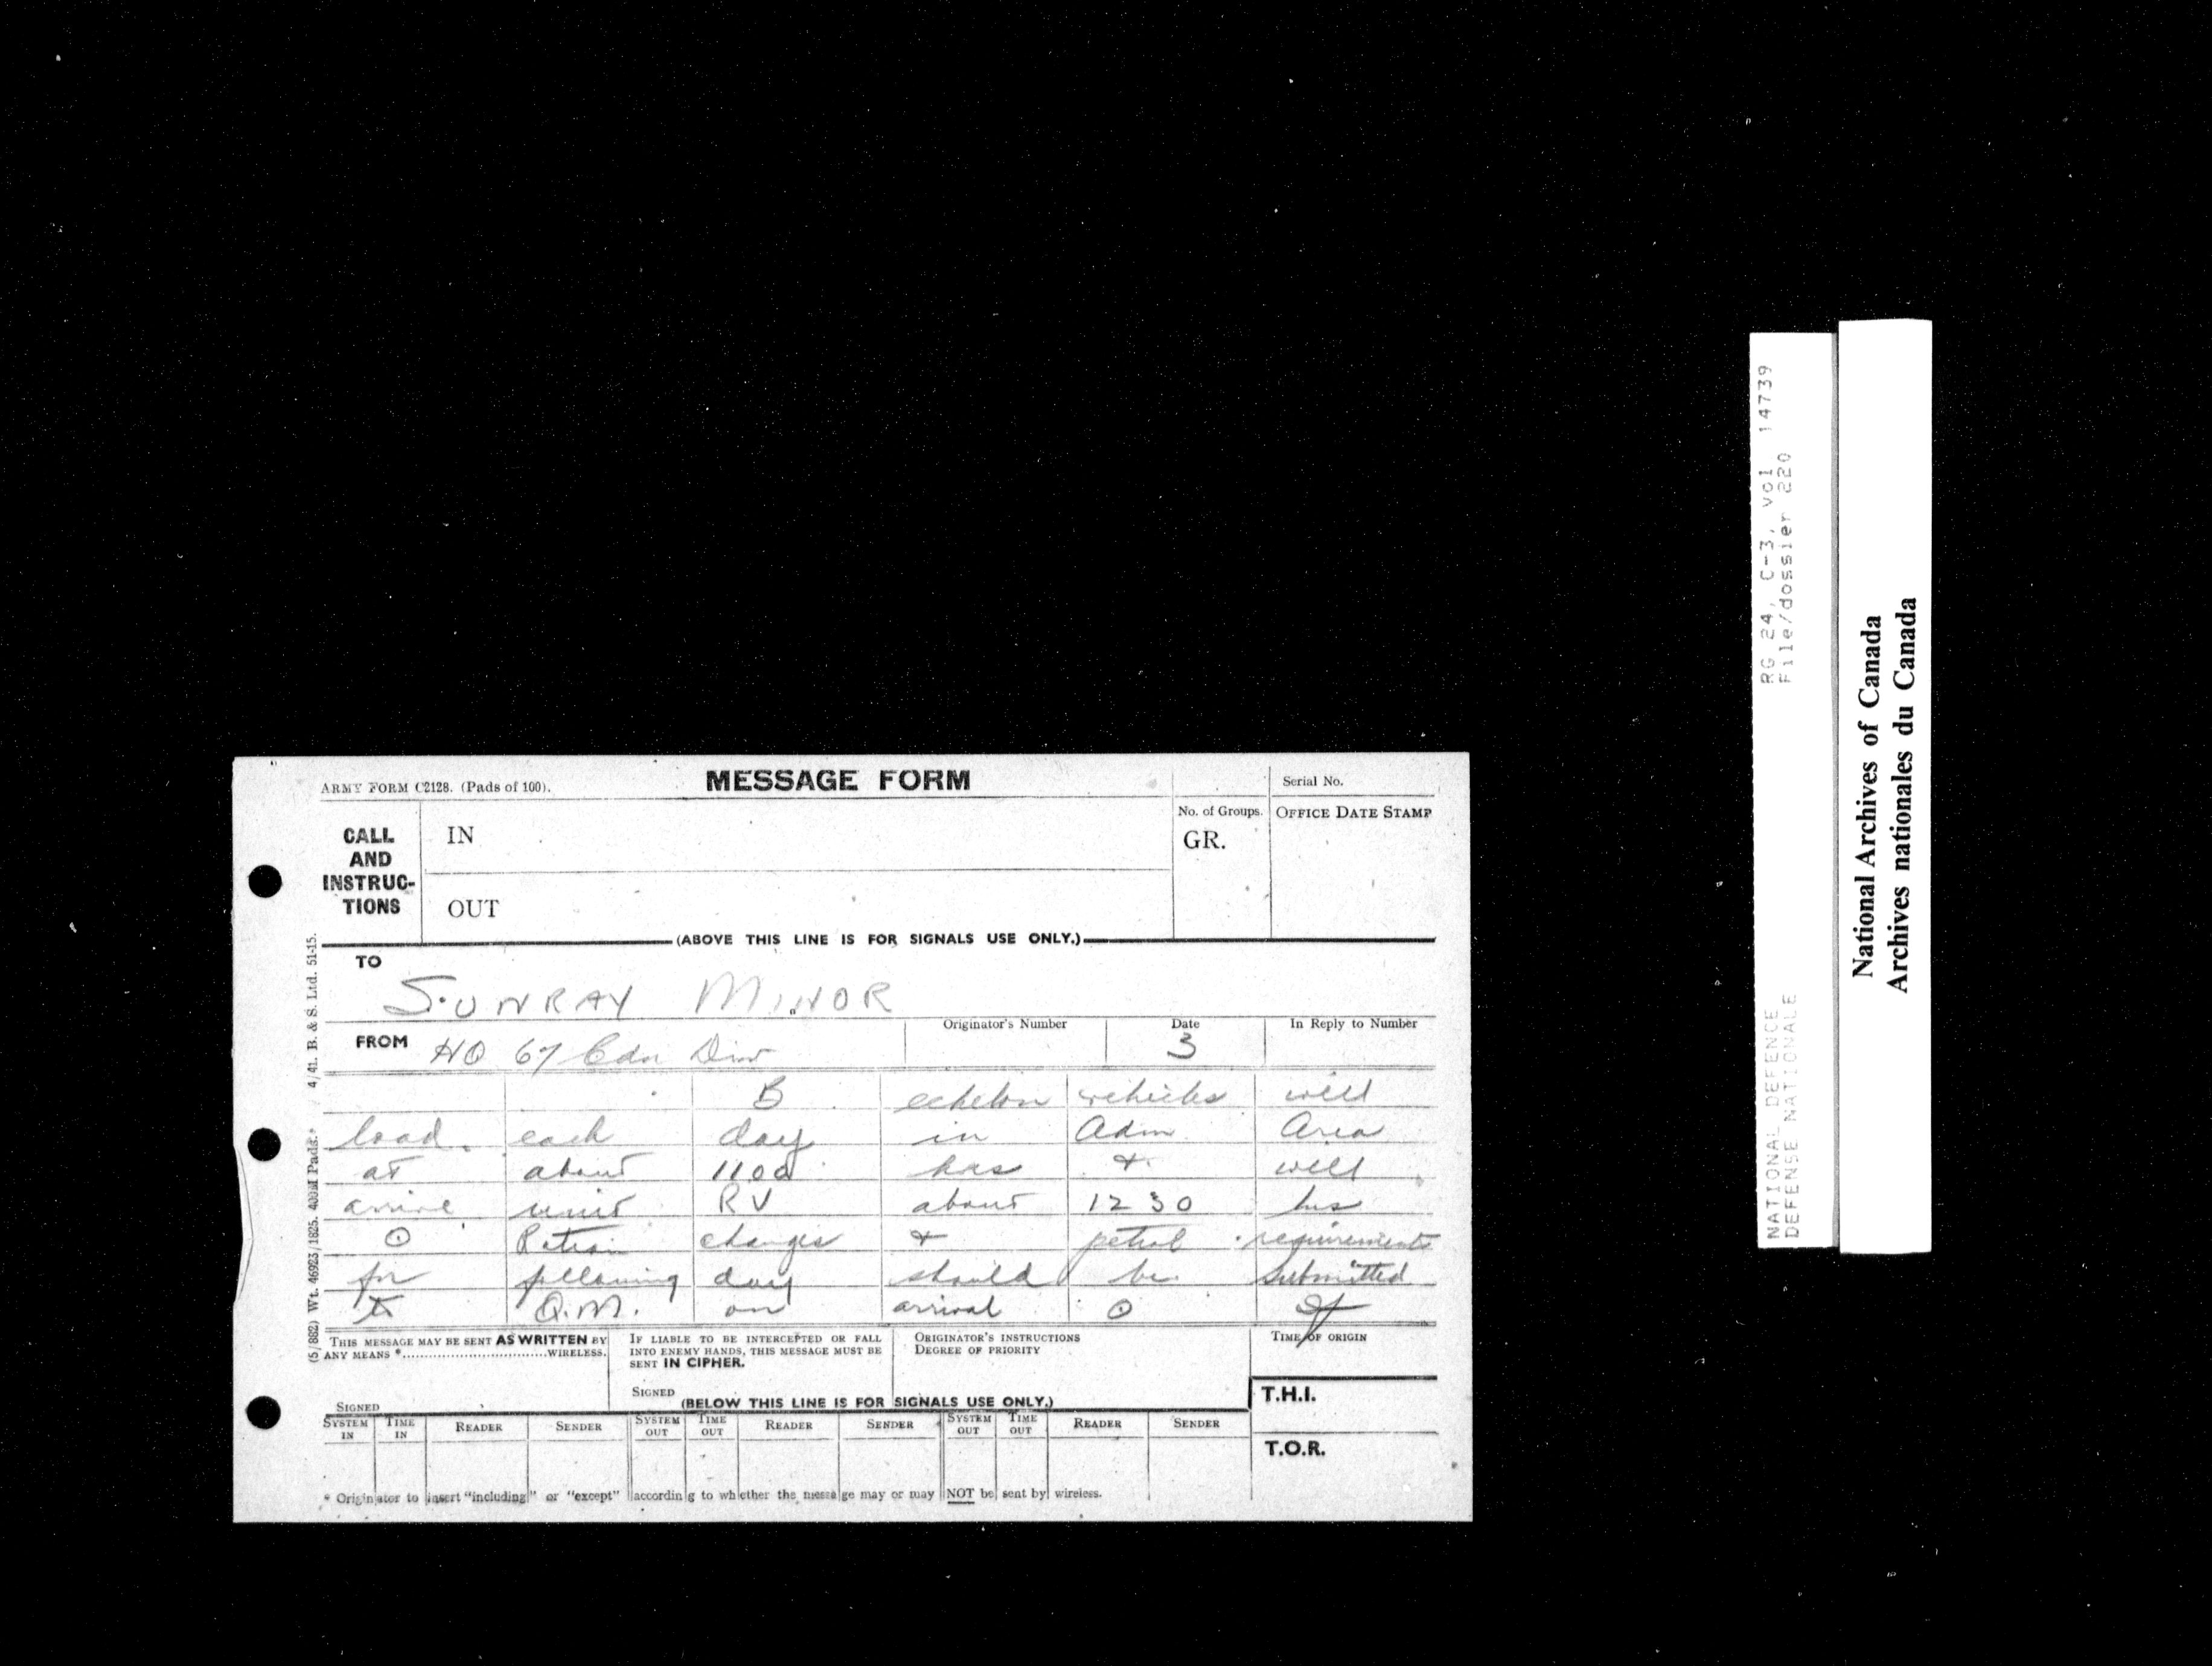 ARMY FORM C2128. (Pads of 100).
MESSAGE FORM
Serial No.
CALL AND INSTRUC- TIONS
IN
No. of Groups.
GR.
OFFICE DATE STAMP
OUT
(ABOVE THIS LINE IS FOR SIGNALS USE ONLY.)
TO
SUNRAY MINOR
FROM HQ 67 Cdn Div
Originator's Number
Date
3
In Reply to Number
B echelon vehicles will
load each day in Adm Area
at about 1100 hrs & will
arrive unit RV about 1230 hrs
⊙ Ration changes & petrol requirements
for following day should be submitted
to Q.M. on arrival ⊙ If
THIS MESSAGE MAY BE SENT AS WRITTEN BY
ANY MEANS *..............................WIRELESS.
SIGNED
IF LIABLE TO BE INTERCEPTED OR FALL
INTO ENEMY HANDS, THIS MESSAGE MUST BE
SENT IN CIPHER.
SIGNED
ORIGINATOR'S INSTRUCTIONS
DEGREE OF PRIORITY
TIME OF ORIGIN
(BELOW THIS LINE IS FOR SIGNALS USE ONLY.)
T.H.I.
SYSTEM IN TIME IN READER SENDER SYSTEM OUT TIME OUT READER SENDER SYSTEM OUT TIME OUT READER SENDER
T.O.R.
* Originator to insert "including" or "except" according to whether the message may or may NOT be sent by wireless.
(5/882) Wt. 46923/1825. 400M Pads. 4/41. B. & S. Ltd. 51-15.
NATIONAL DEFENCE RG 24, C-3, vol 14739
DEFENSE NATIONALE File/dossier 220
National Archives of Canada
Archives nationales du Canada